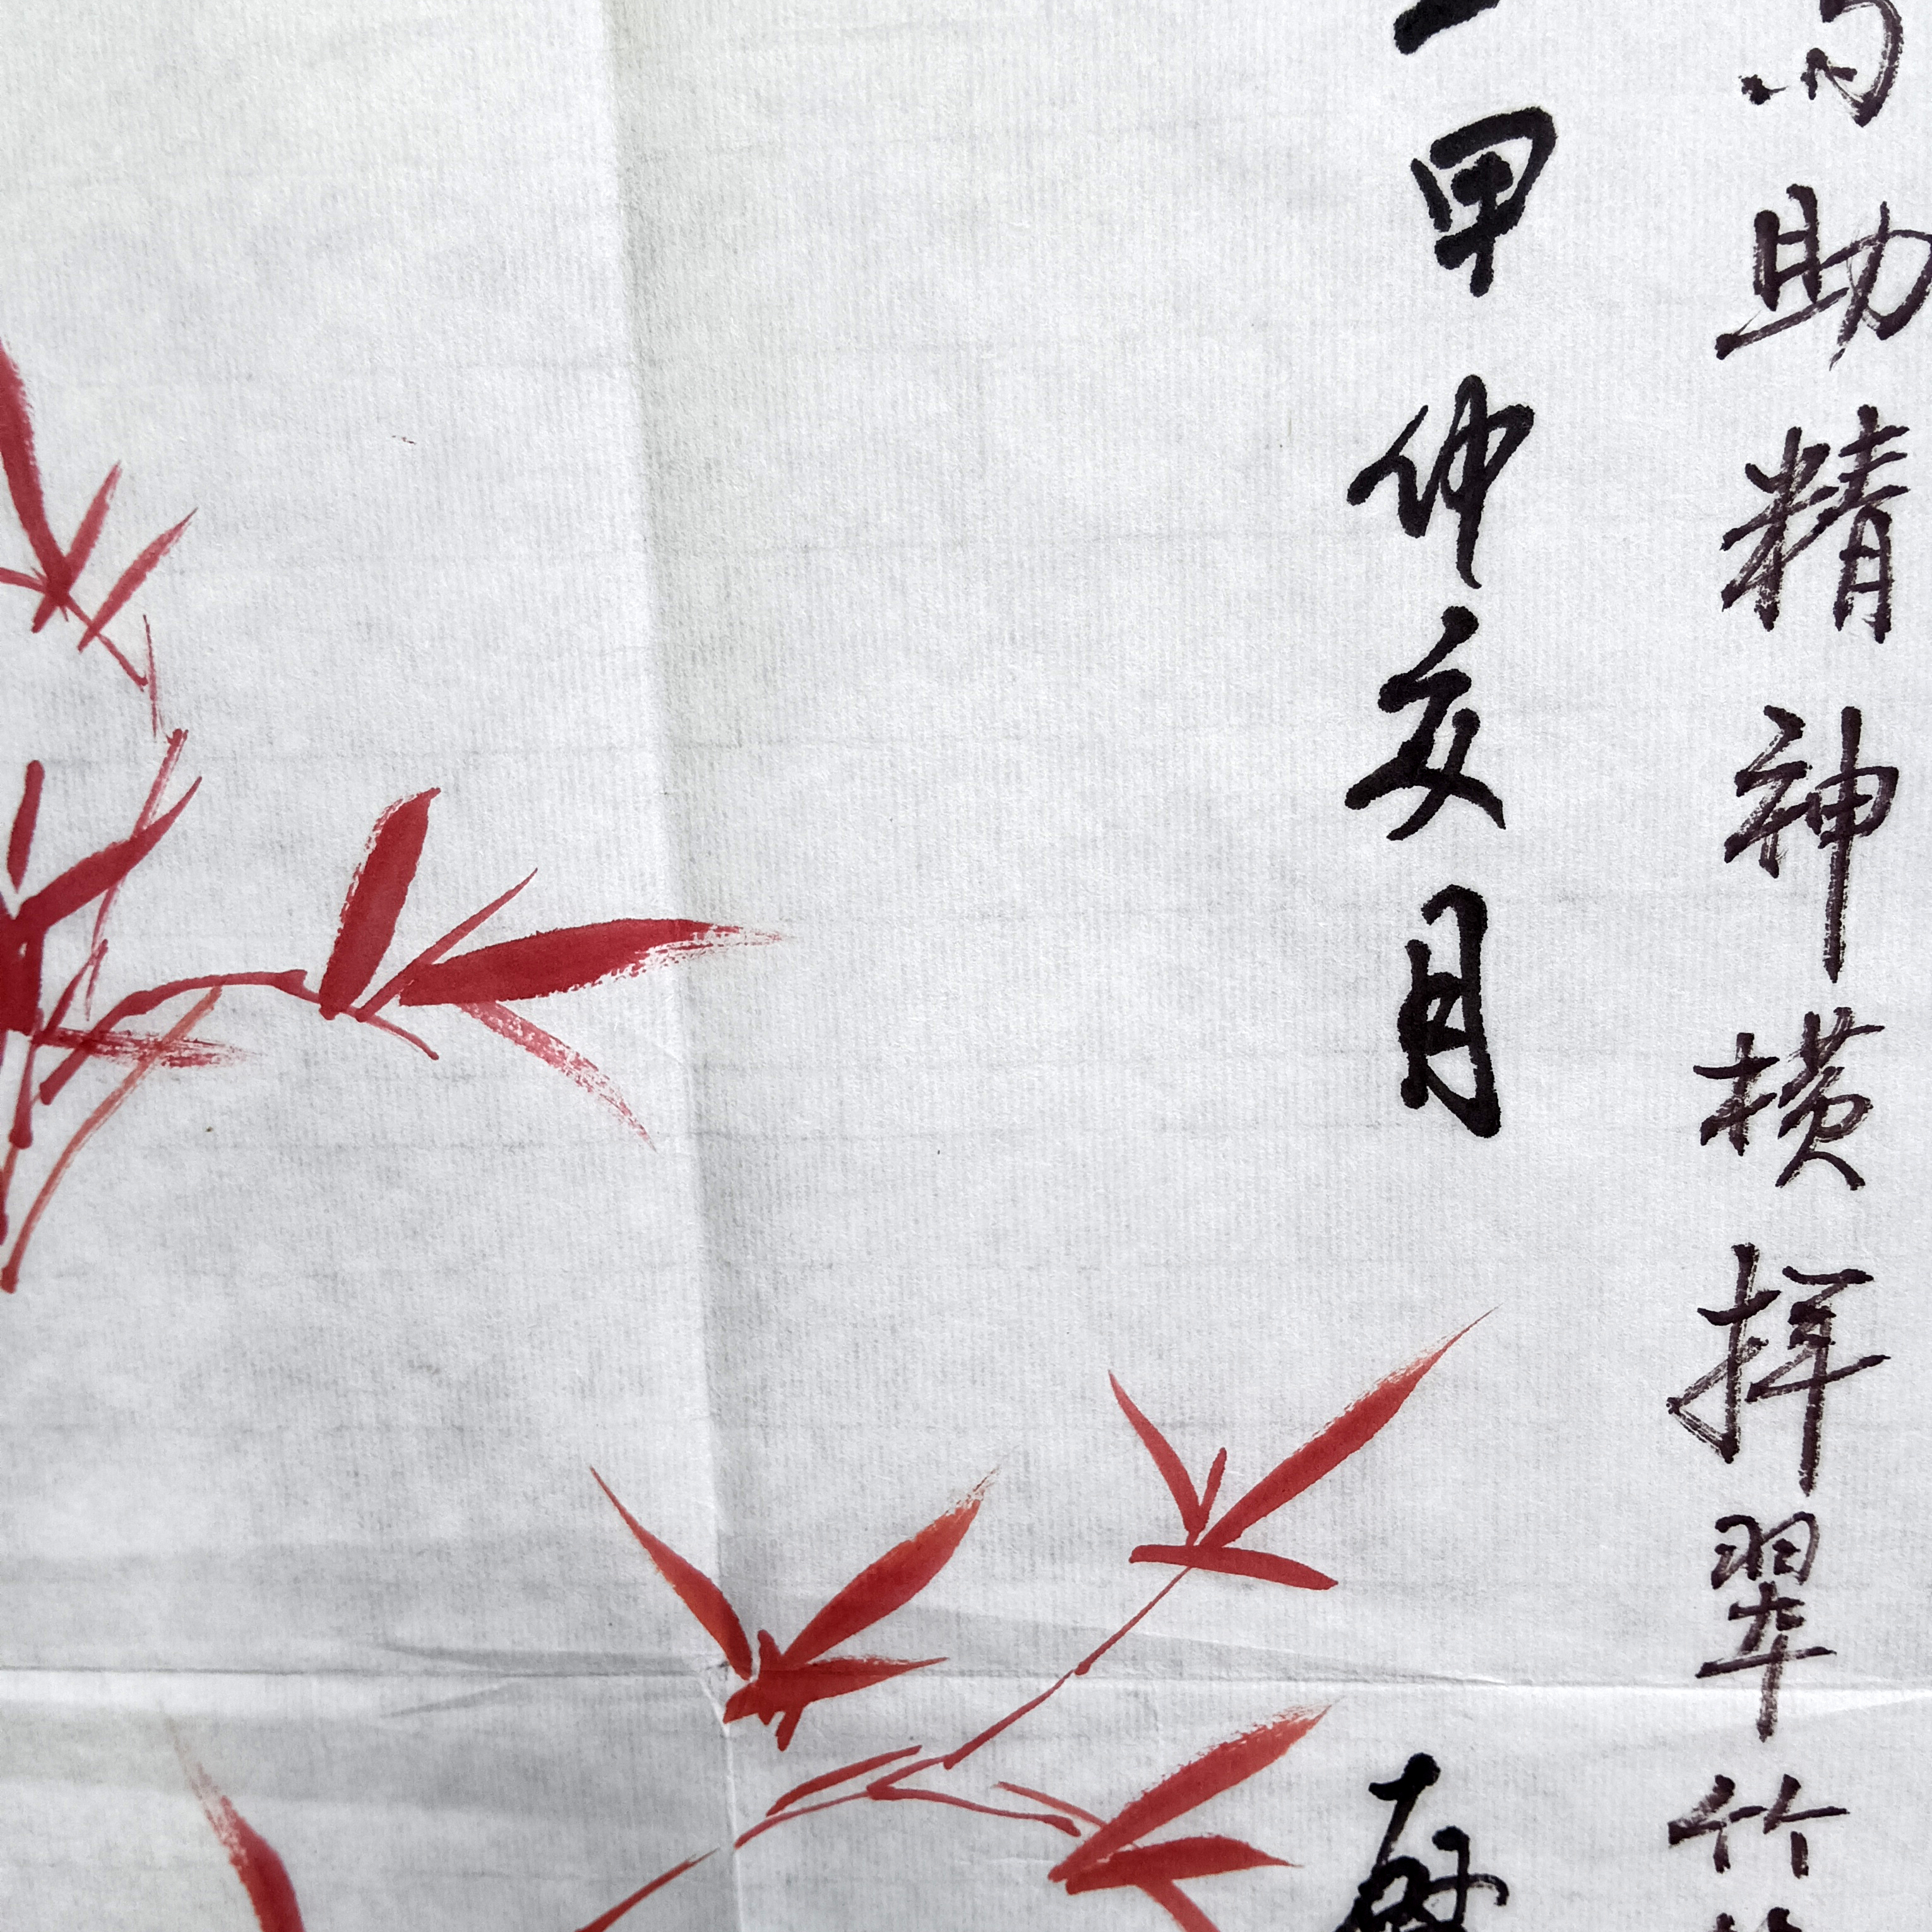 助精神横揮翠竹
甲仲夏月